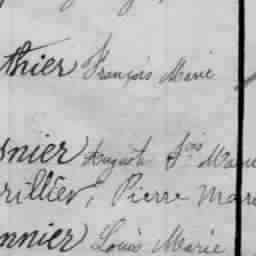 thier François Marie
snier Auguste Fois Marie
rillier, Pierre Mari
nnier Louis Marie